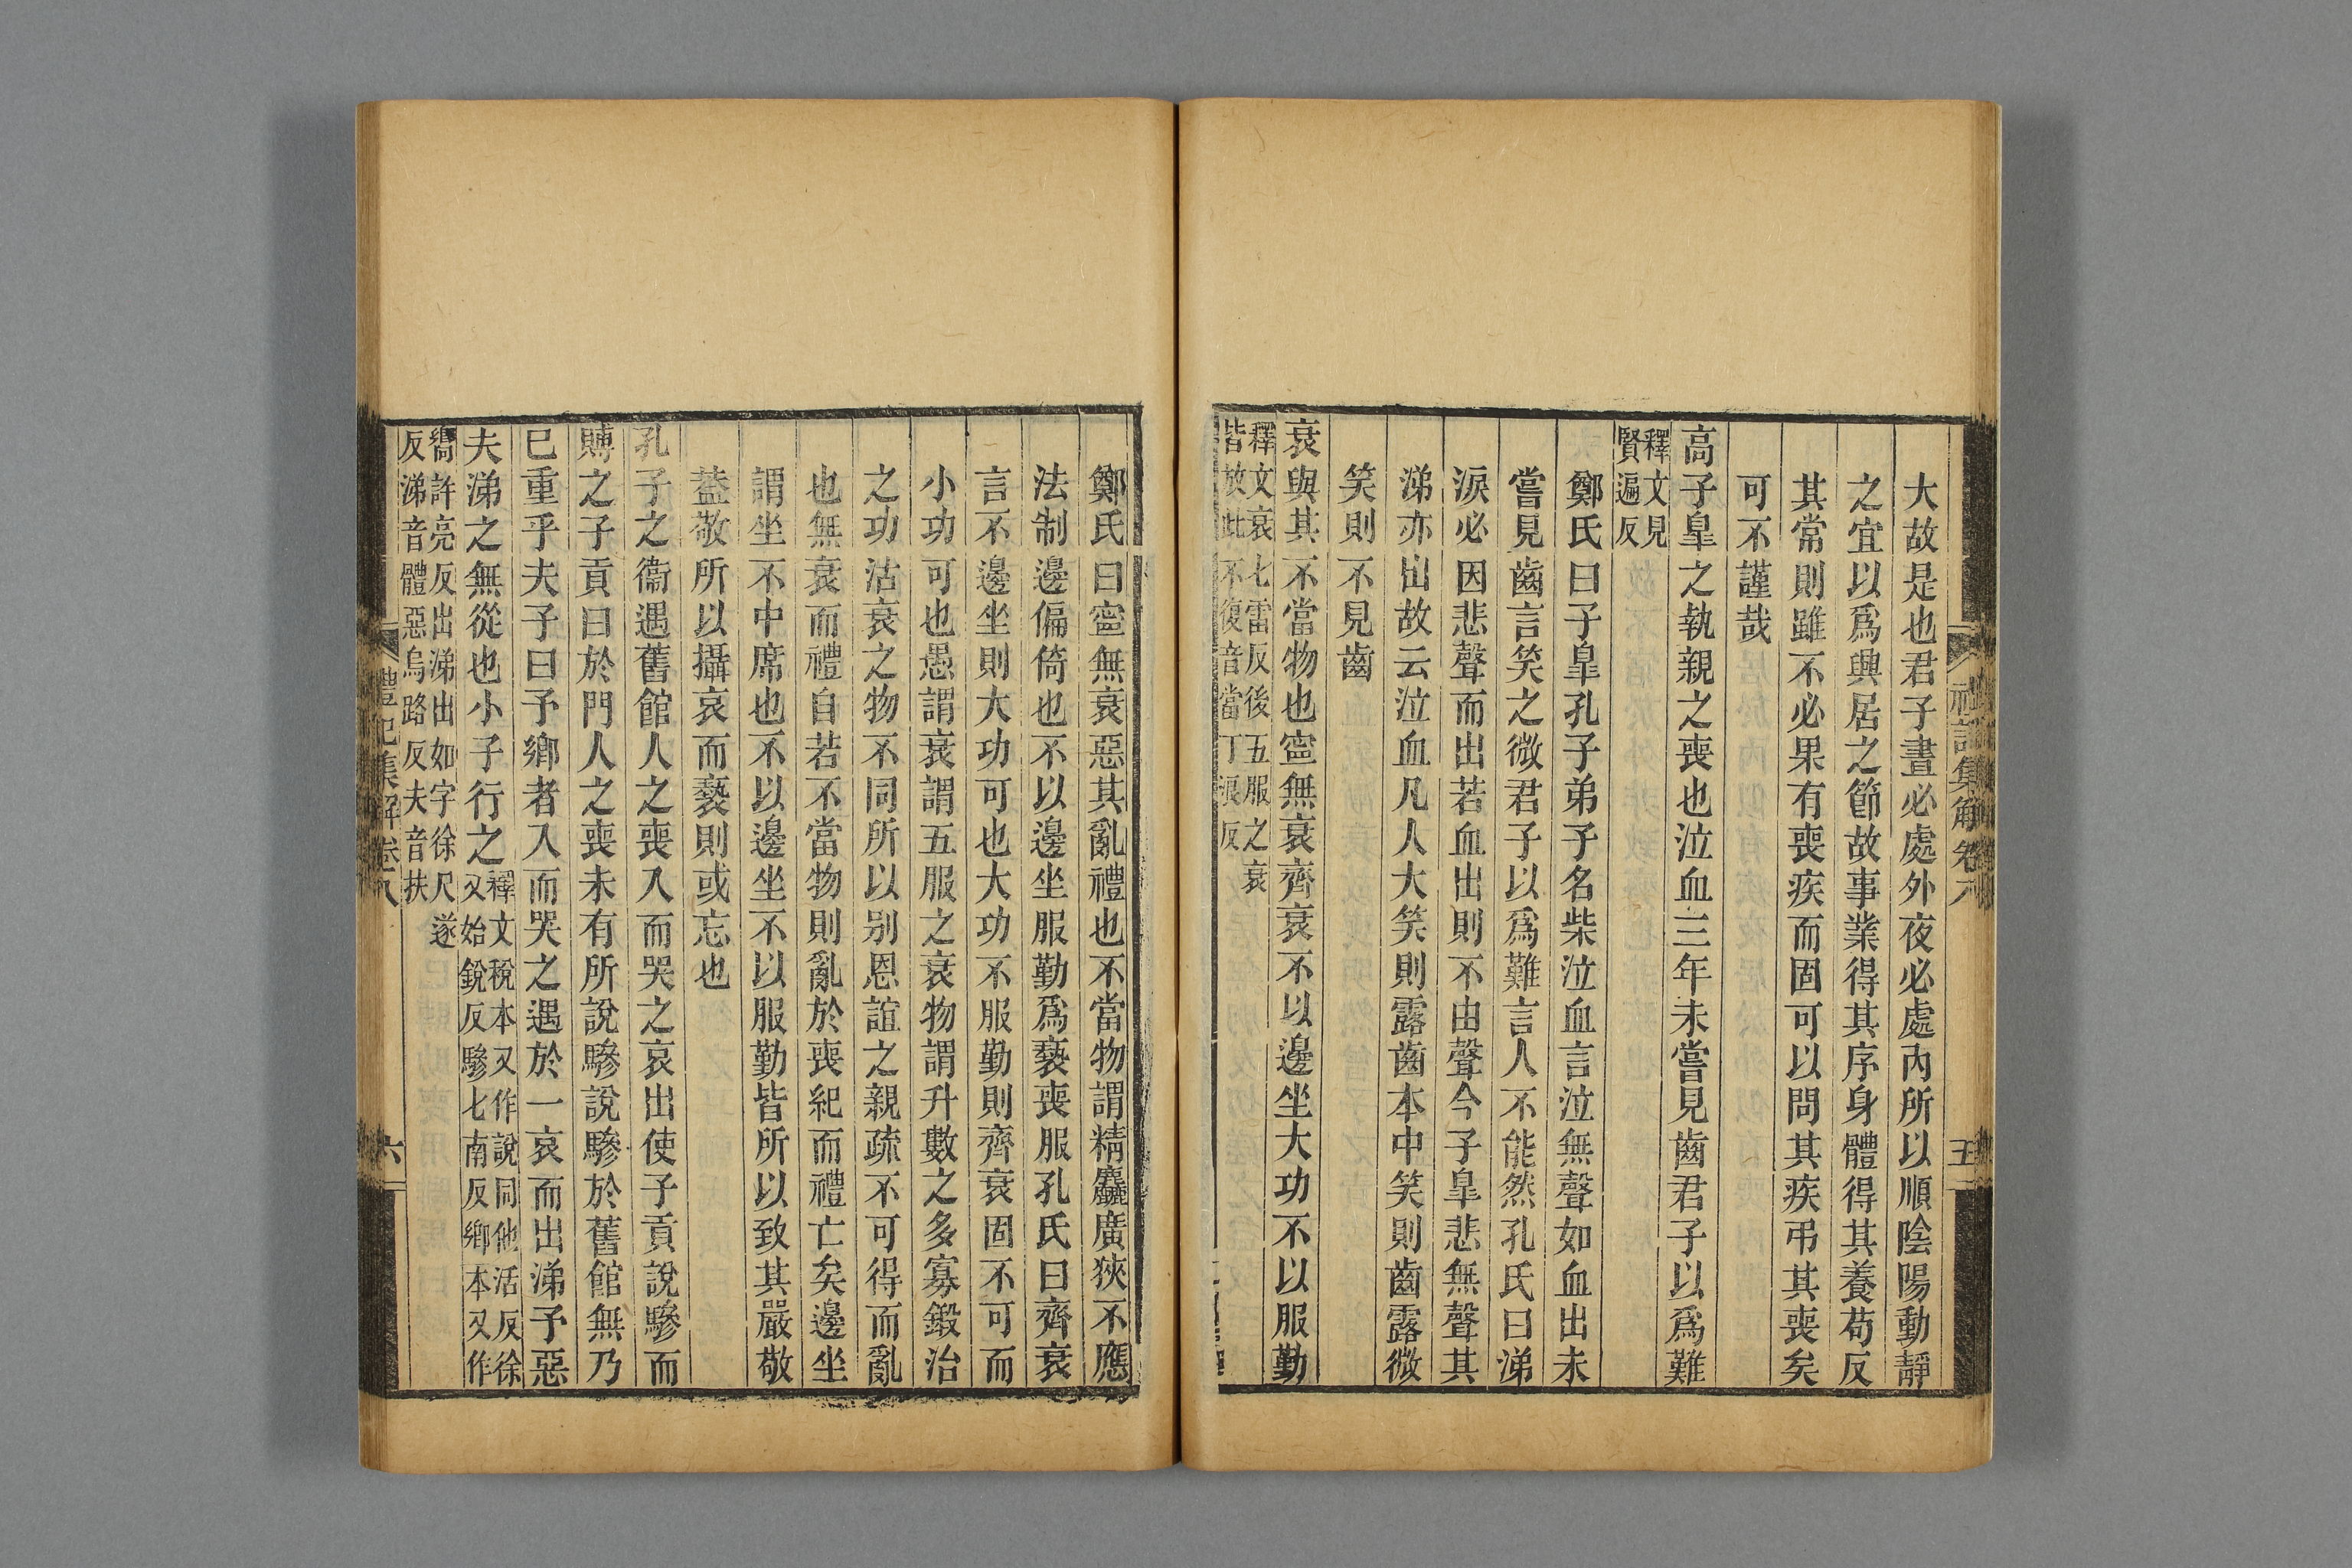 禮記集解卷八
五
大故是也君子晝必處外夜必處內所以順陰陽動靜
之宜以爲興居之節故事業得其序身體得其養苟反
其常則雖不必果有喪疾而固可以問其疾弔其喪矣
可不謹哉
高子臯之執親之喪也泣血三年未嘗見齒君子以爲難
釋文見
賢遍反
鄭氏曰子臯孔子弟子名柴泣血言泣無聲如血出未
嘗見齒言笑之微君子以爲難言人不能然孔氏曰涕
淚必因悲聲而出若血出則不由聲今子臯悲無聲其
涕亦出故云泣血凡人大笑則露齒本中笑則齒露微
笑則不見齒
衰與其不當物也寍無衰齊衰不以邊坐大功不以服勤
釋文衰七雷反後五服之衰
皆放此不復音當丁浪反
鄭氏曰寍無衰惡其亂禮也不當物謂精麤廣狹不應
法制邊偏倚也不以邊坐服勤爲褻喪服孔氏曰齊衰
言不邊坐則大功可也大功不服勤則齊衰固不可而
小功可也愚謂衰謂五服之衰物謂升數之多寡鍛治
之功沽衰之物不同所以别恩誼之親疏不可得而亂
也無衰而禮自若不當物則亂於喪紀而禮亡矣邊坐
謂坐不中席也不以邊坐不以服勤皆所以致其嚴敬
葢敬所以攝哀而褻則或忘也
孔子之衞遇舊館人之喪入而哭之哀出使子貢說驂而
賻之子貢曰於門人之喪未有所說驂說驂於舊館無乃
已重乎夫子曰予鄉者入而哭之遇於一哀而出涕予惡
夫涕之無從也小子行之
釋文稅本又作說同他活反徐
又始銳反驂七南反鄉本又作
嚮許亮反出涕出如字徐尺遂
反涕音體惡烏路反夫音扶
禮記集解卷八
六